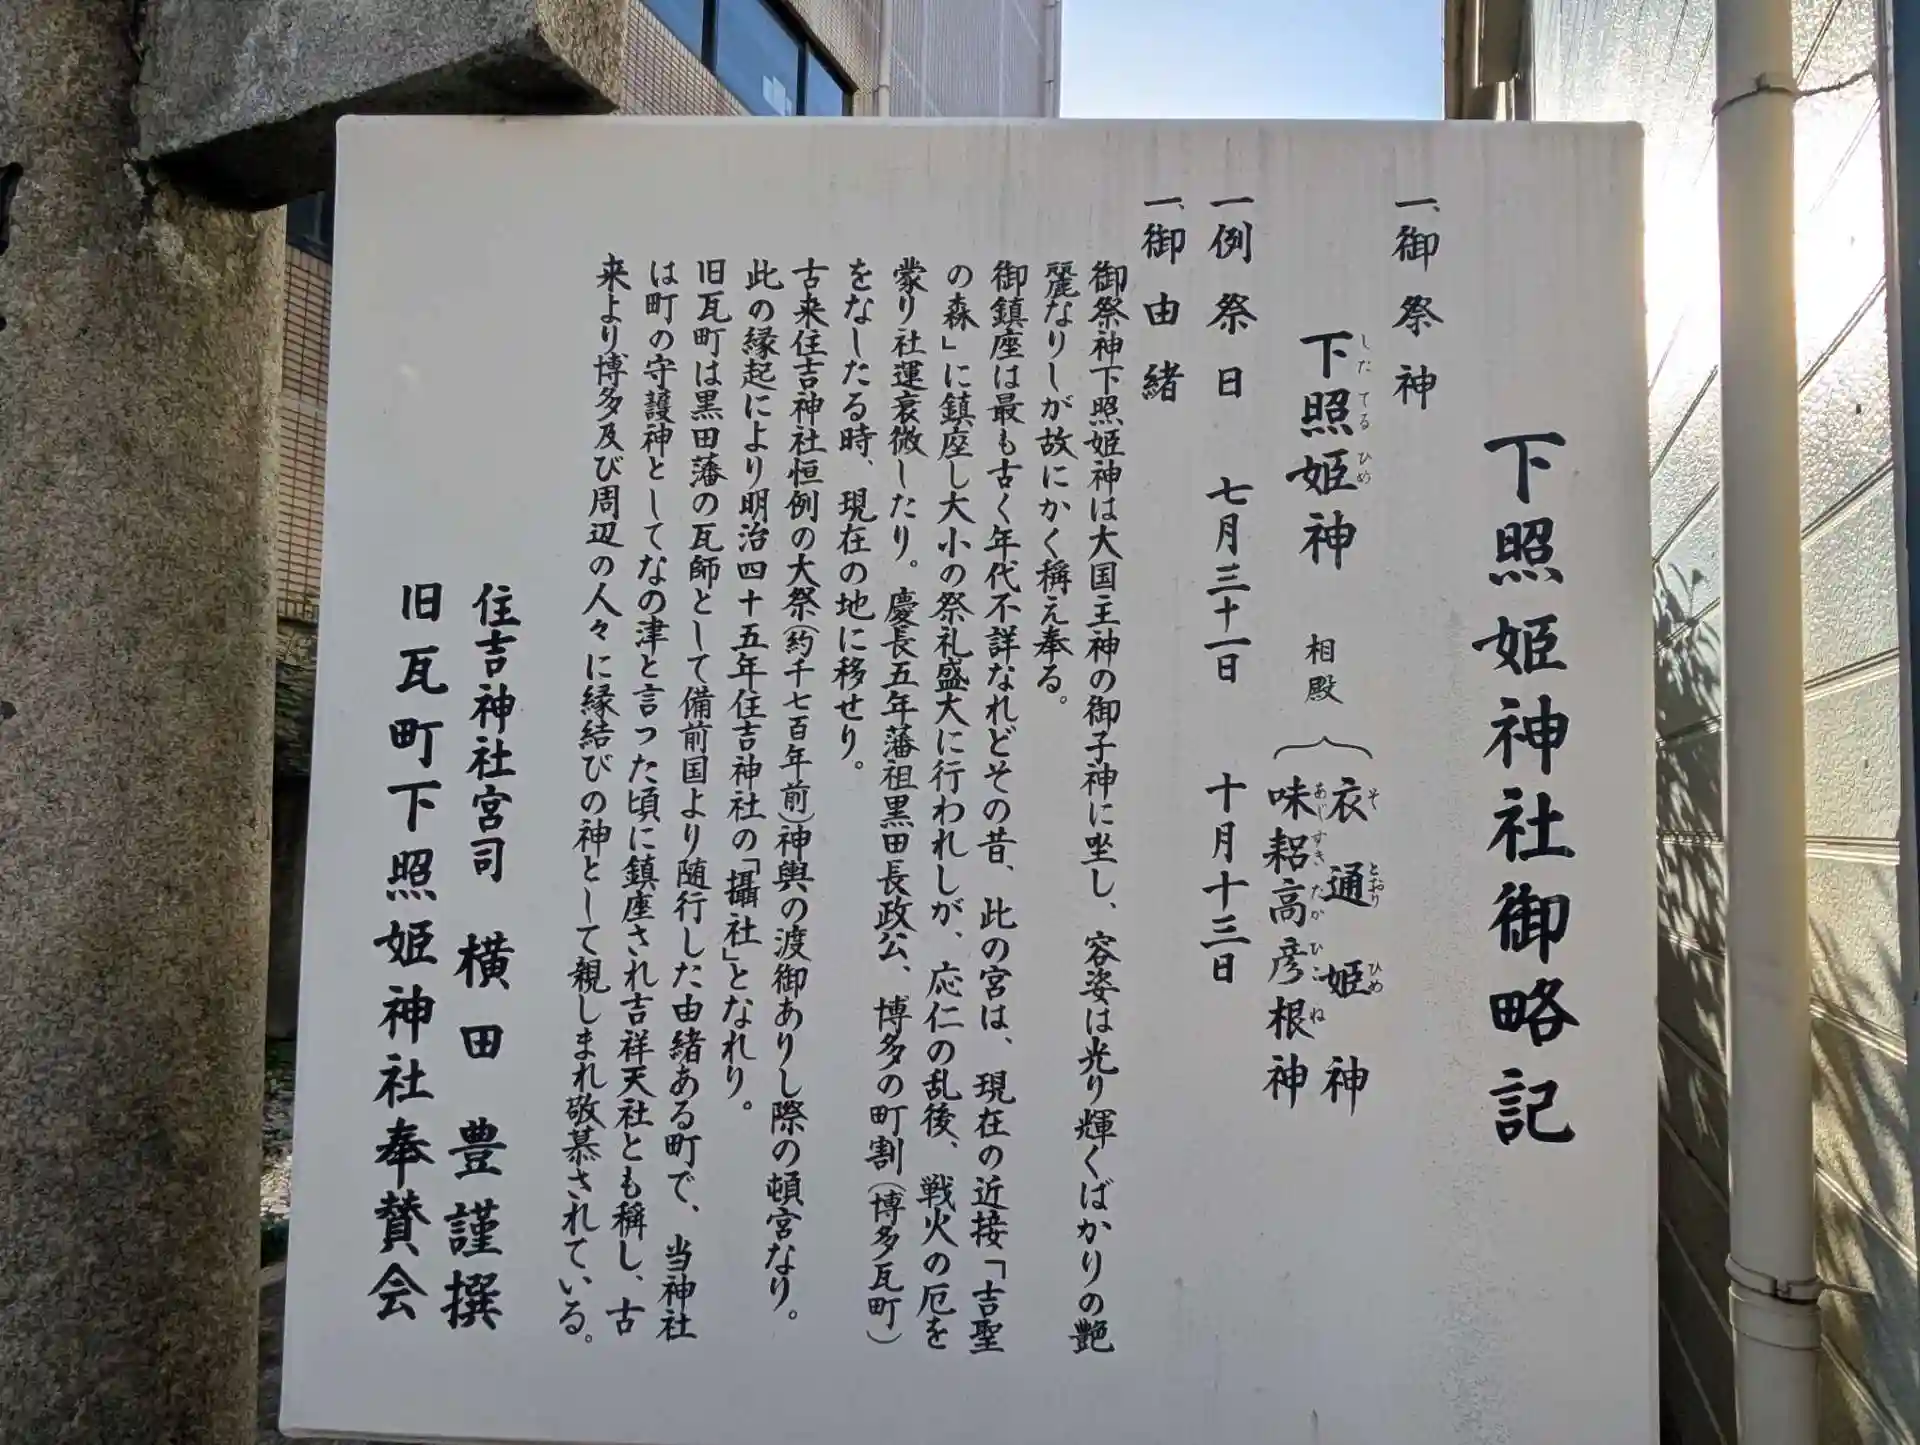 下照姫神社御略記
一、御祭神
下照姫神 相殿 衣通姫神
味耜高彦根神
したてるひめ
そとおりひめ
あじすきたかひこね
一例祭日 七月三十一日 十月十三日
一、御由緒
御祭神下照姫神は大国主神の御子神に坐し、容姿は光り輝くばかりの艶
麗なりしが故にかく稱え奉る。
御鎮座は最も古く年代不詳なれどその昔、此の宮は、現在の近接「吉聖
の森」に鎮座し大小の祭礼盛大に行われしが、応仁の乱後、戦火の厄を
蒙り社運衰微したり。慶長五年藩祖黒田長政公、博多の町割(博多瓦町)
をなしたる時、現在の地に移せり。
古来住吉神社恒例の大祭(約千七百年前)神輿の渡御ありし際の頓宮なり。
此の縁起により明治四十五年住吉神社の「攝社」となれり。
旧瓦町は黒田藩の瓦師として備前国より随行した由緒ある町で、当神社
は町の守護神としてなの津と言った頃に鎮座され吉祥天社とも稱し、古
来より博多及び周辺の人々に縁結びの神として親しまれ敬慕されている。
住吉神社宮司 横田豊謹撰
旧瓦町下照姫神社奉賛会